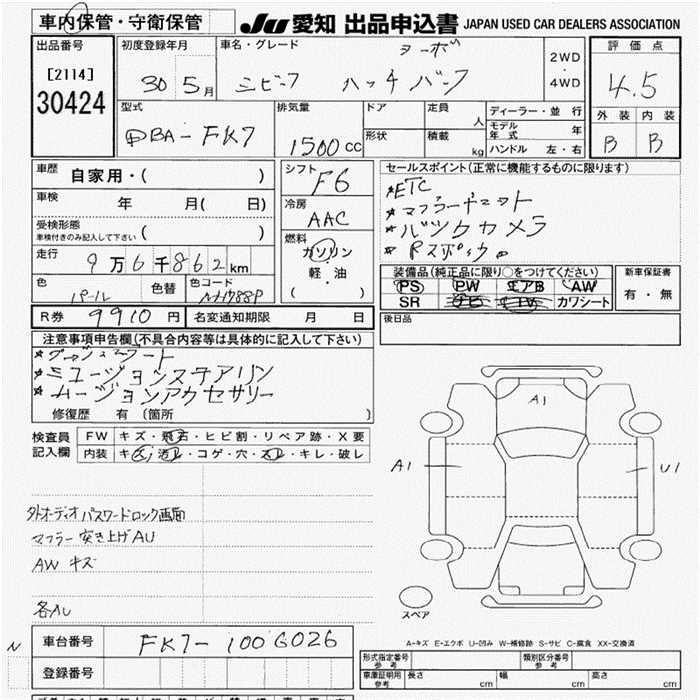 車内保管・守衛保管 JU 愛知 出品申込書 JAPAN USED CAR DEALERS ASSOCIATION
出品番号 初度登録年月 車名・グレード ターボ 2WD ・ 4WD 評価点
[2114] 30 5月 シビック ハッチバック 4.5
30424 型式 排気量 ドア 定員 人 ディーラー・並行 外装 内装
DBA-FK7 1500cc 形状 積載 kg モデル年式 年 B B
ハンドル 左・右
車歴 自家用・( ) シフト F6 セールスポイント(正常に機能するものに限ります)
車検 年 月( 日) 冷房 AAC *ETC
受検形態 *マフラーキット
車検付きのみ記入して下さい ( ) 燃料 *バックカメラ
走行 9万6千862km ガソリン *Rスポイラー
軽・油
( )
色 パール 色替 色コード NH788P
装備品(純正品に限り○をつけてください) 新車保証書
PS PW エアB AW 有・無
SR カワシート
R券 9910円 名変通知期限 月 日 後日品
注意事項申告欄(不具合内容等は具体的に記入して下さい)
修復歴 有 〔箇所 〕
検査員 FW キズ・飛石・ヒビ割・リペア跡・X要
記入欄 内装 キズ・汚レ・コゲ・穴・スレ・キレ・破レ
A1
A1 U1
外オーディオ パスワードロック画面
マフラー 突き上げAU
AW キズ
各ハレ
スペア
A-キズ E-エクボ U-凹み W-補修跡 S-サビ C-腐食 XX-交換済
N 車台番号 FK7-1006026 形式指定番号 参考 類別区分番号 参考
登録番号 車庫証明用 参考 長さ cm 幅 cm 高さ cm